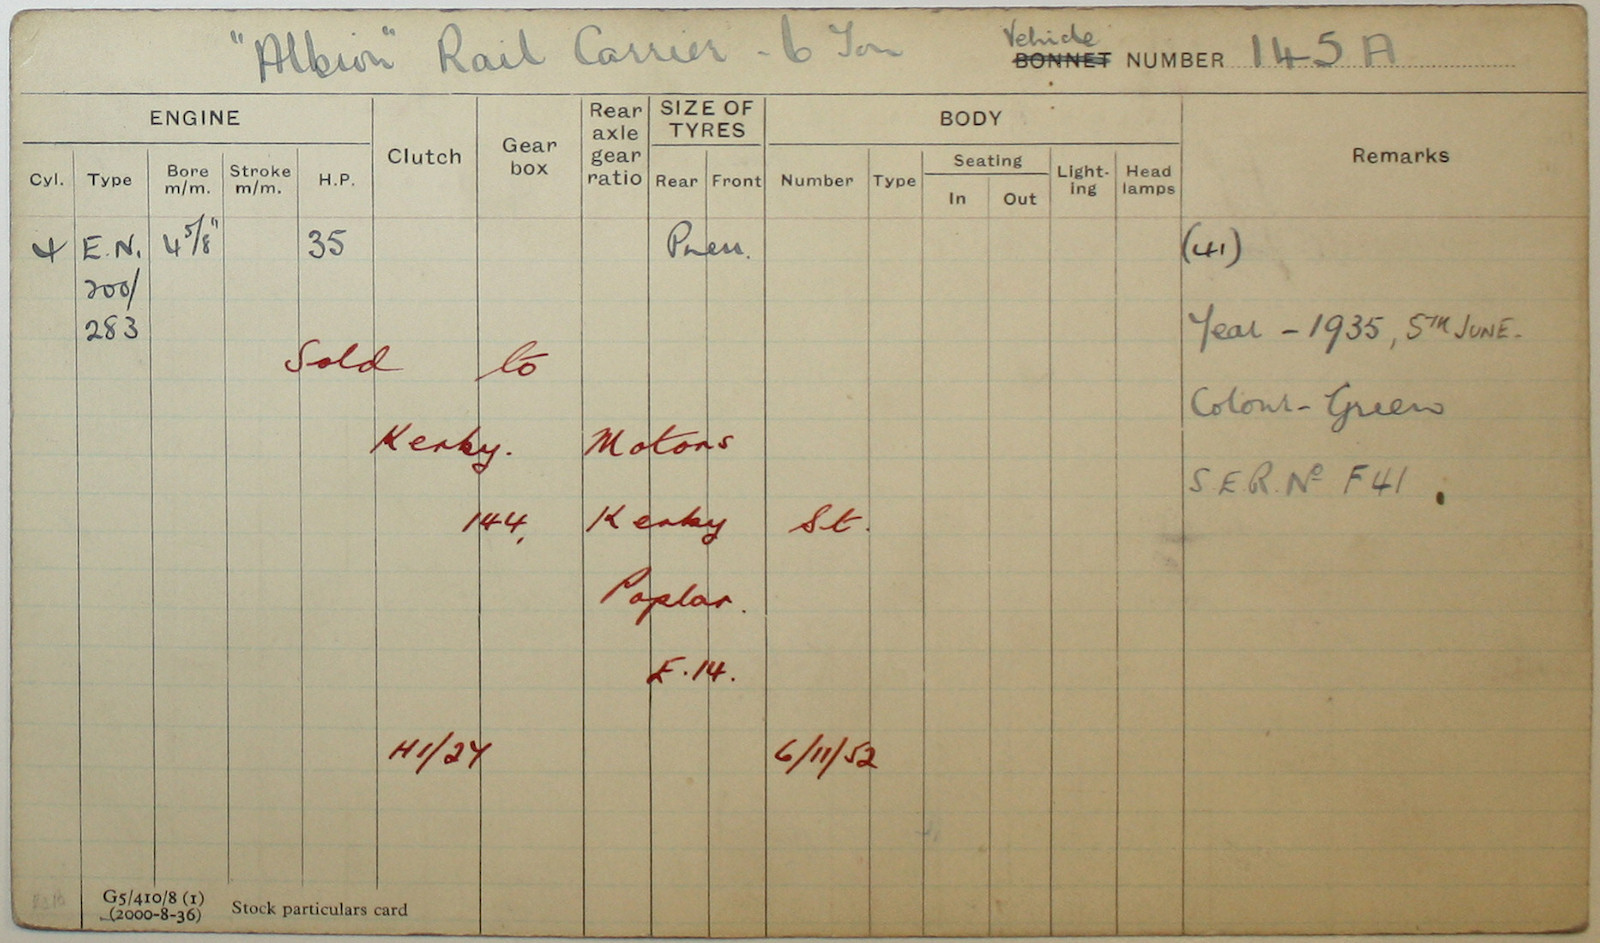 "Albion" Rail Carrier - 6 Ton
Vehicle
BONNET NUMBER 145 A
ENGINE
Clutch
Gear box
Rear axle gear ratio
SIZE OF TYRES
BODY
Remarks
Cyl. Type Bore m/m. Stroke m/m. H.P.
Rear Front Number Type
Seating
In Out
Light-ing
Head lamps
4 E.N. 4 5/8" 35 Pneu. (41)
200/
283
Year - 1935, 5TH JUNE.
Sold to
Colour - Green
Kerby. Motors
S.E.R. No F41
144, Kerby St.
Poplar.
E.14.
H1/27 6/11/52
G5/410/8 (1)
(2000-8-36)
Stock particulars card